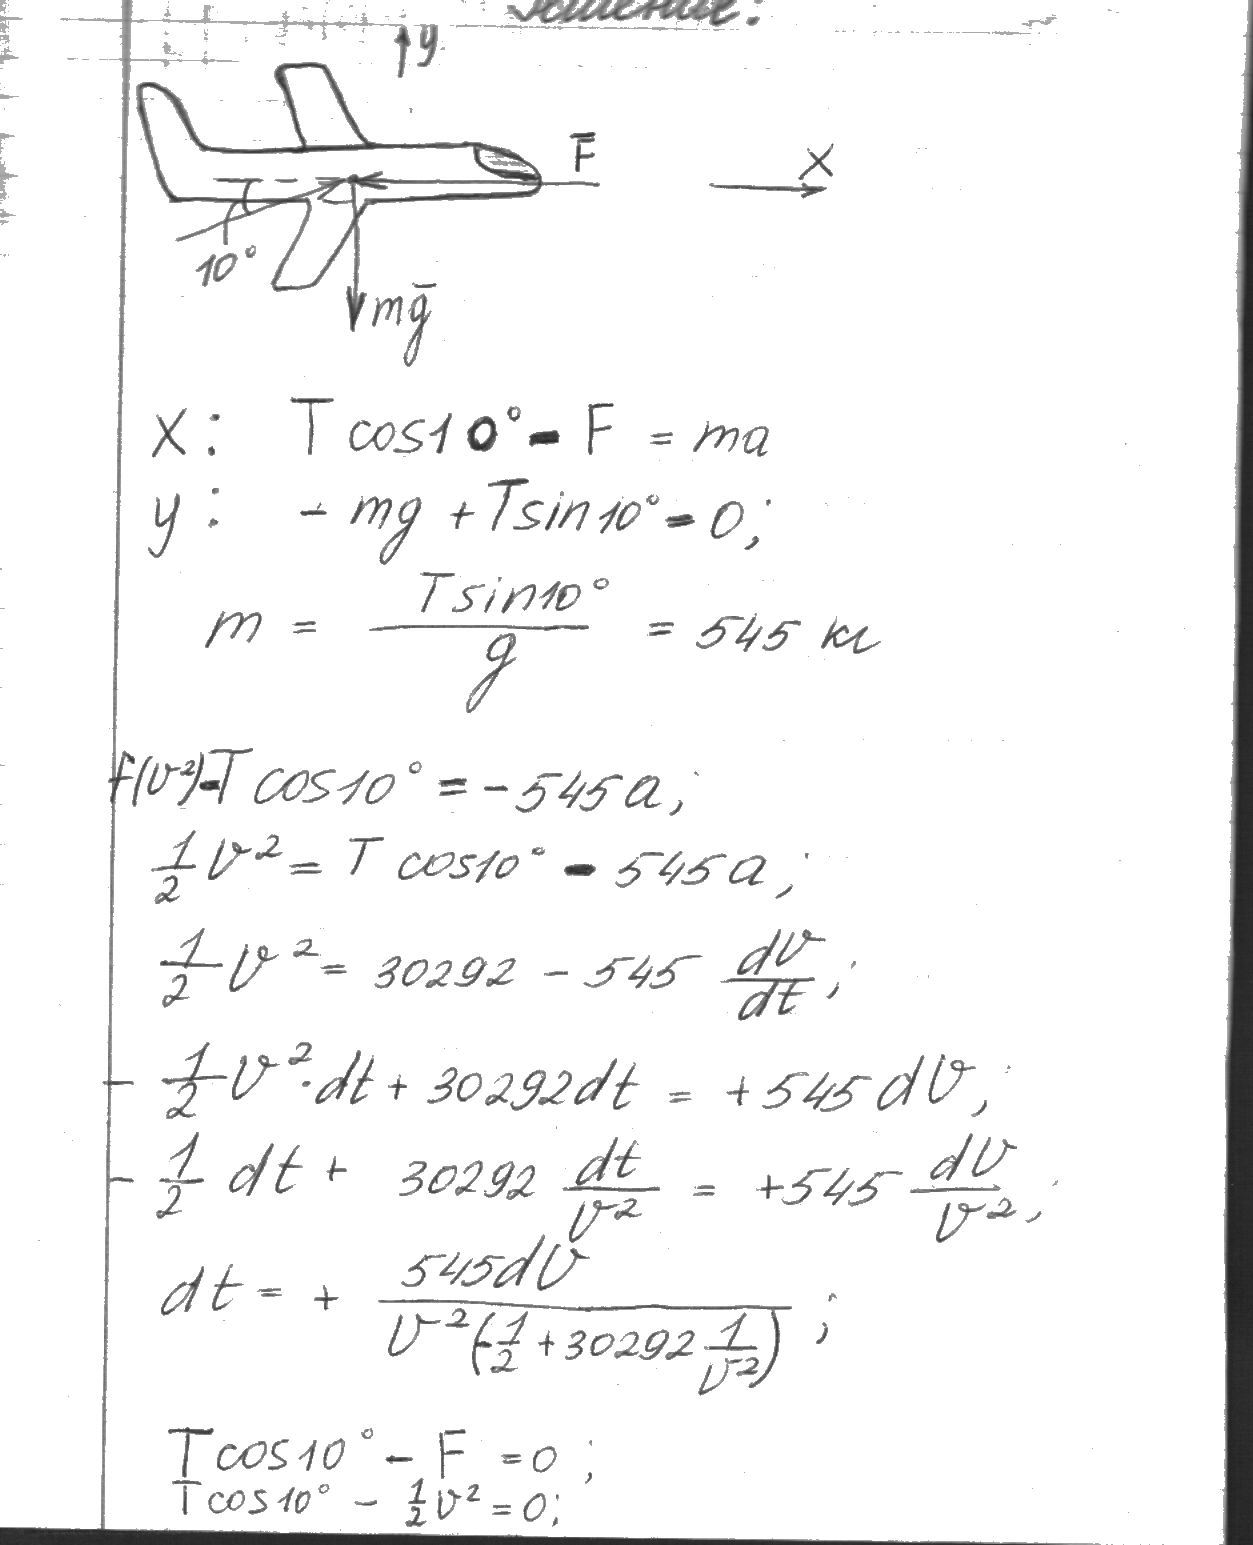 Решение:
y
F̄
X
10°
mḡ
X: T cos10° - F = ma
y: - mg + T sin10° = 0;
m = T sin10° / g = 545 кг
F(v²) - T cos10° = -545a;
1/2 v² = T cos10° - 545a;
1/2 v² = 30292 - 545 dv/dt;
- 1/2 v² · dt + 30292 dt = +545 dv;
- 1/2 dt + 30292 dt/v² = +545 dv/v²;
dt = + 545dv / v²(-1/2 + 30292 1/v²);
T cos10° - F = 0;
T cos10° - 1/2 v² = 0;